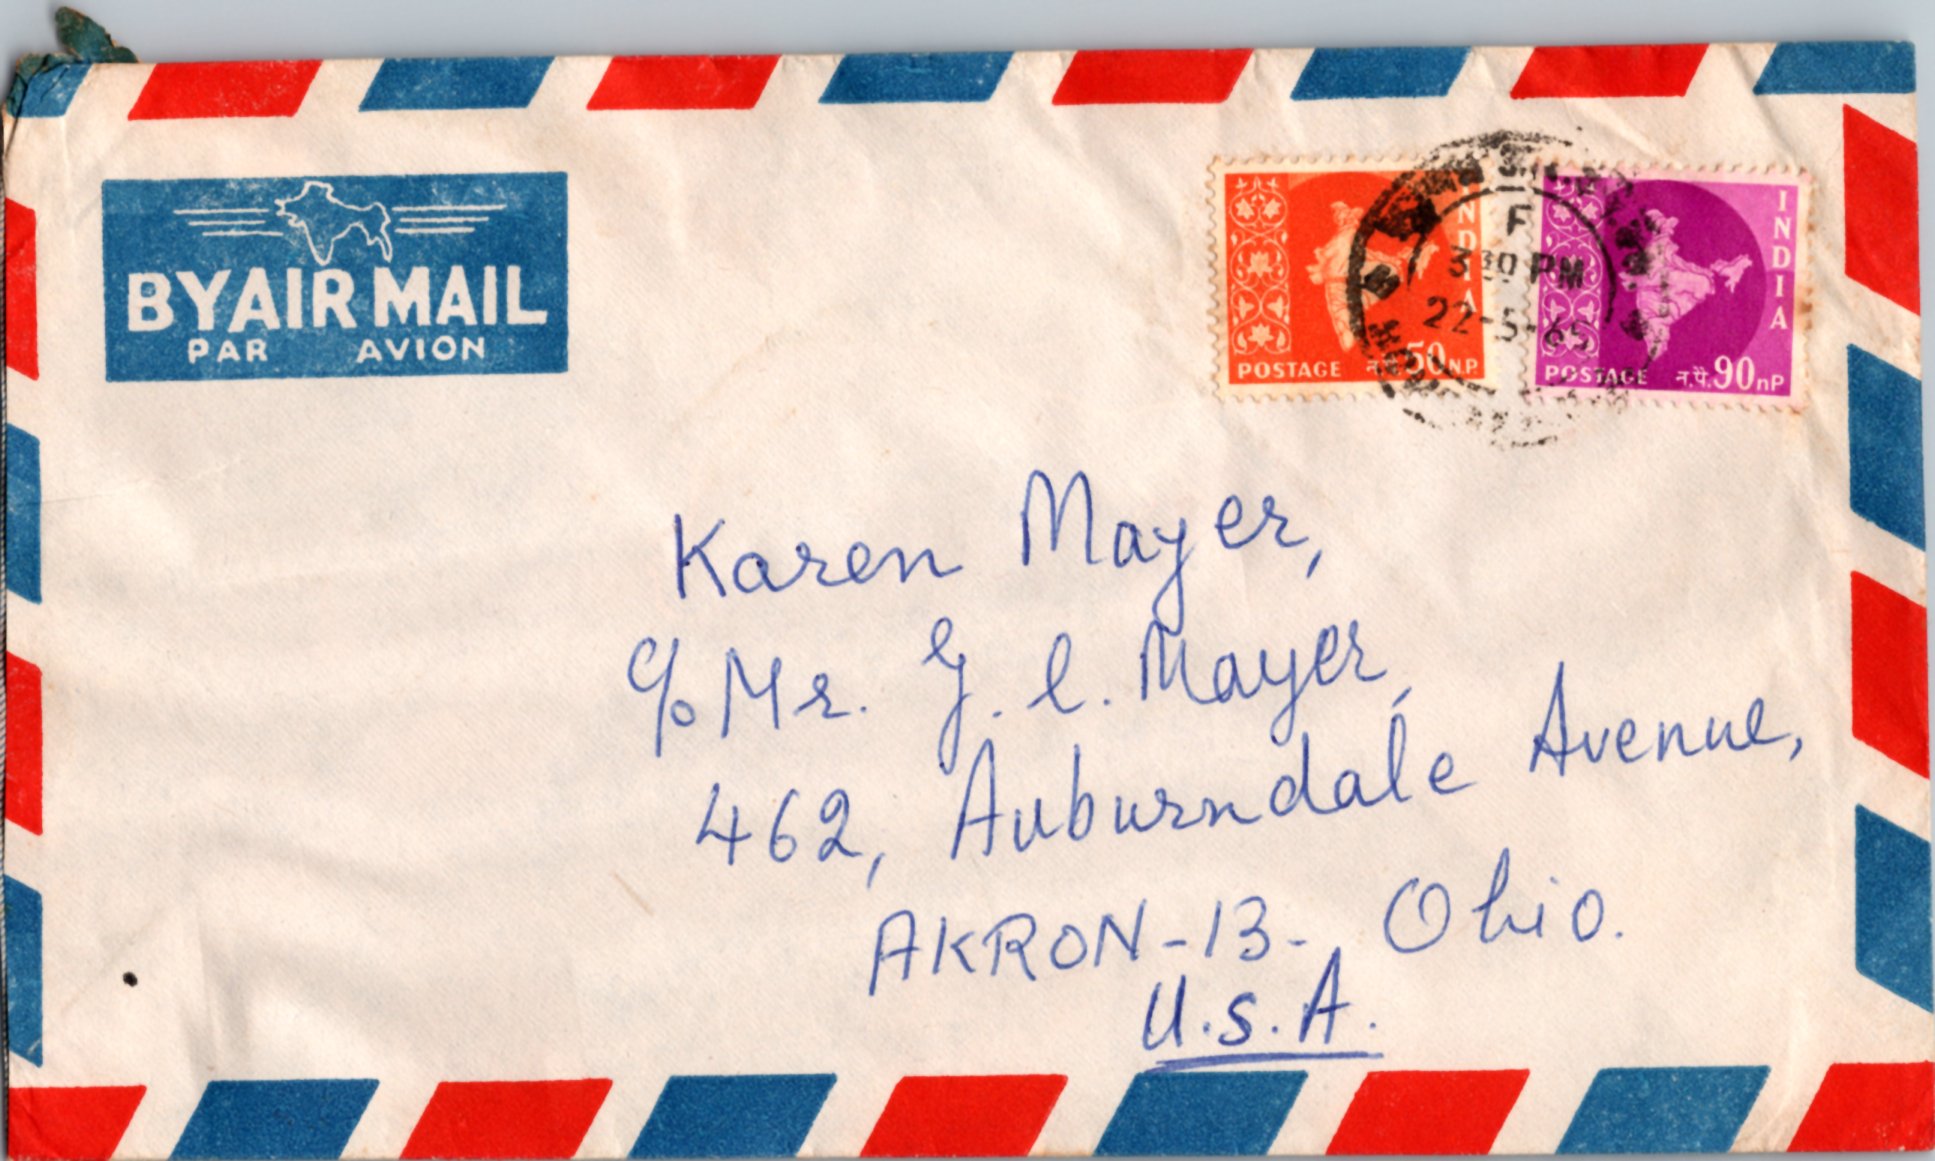 BY AIR MAIL
PAR AVION
INDIA
POSTAGE न.पै. 50 NP
INDIA
POSTAGE न.पै. 90 nP
F
3 30 PM
22-5-65
Karen Mayer,
c/o Mr. G. C. Mayer,
462, Auburndale Avenue,
AKRON-13-, Ohio.
U.S.A.